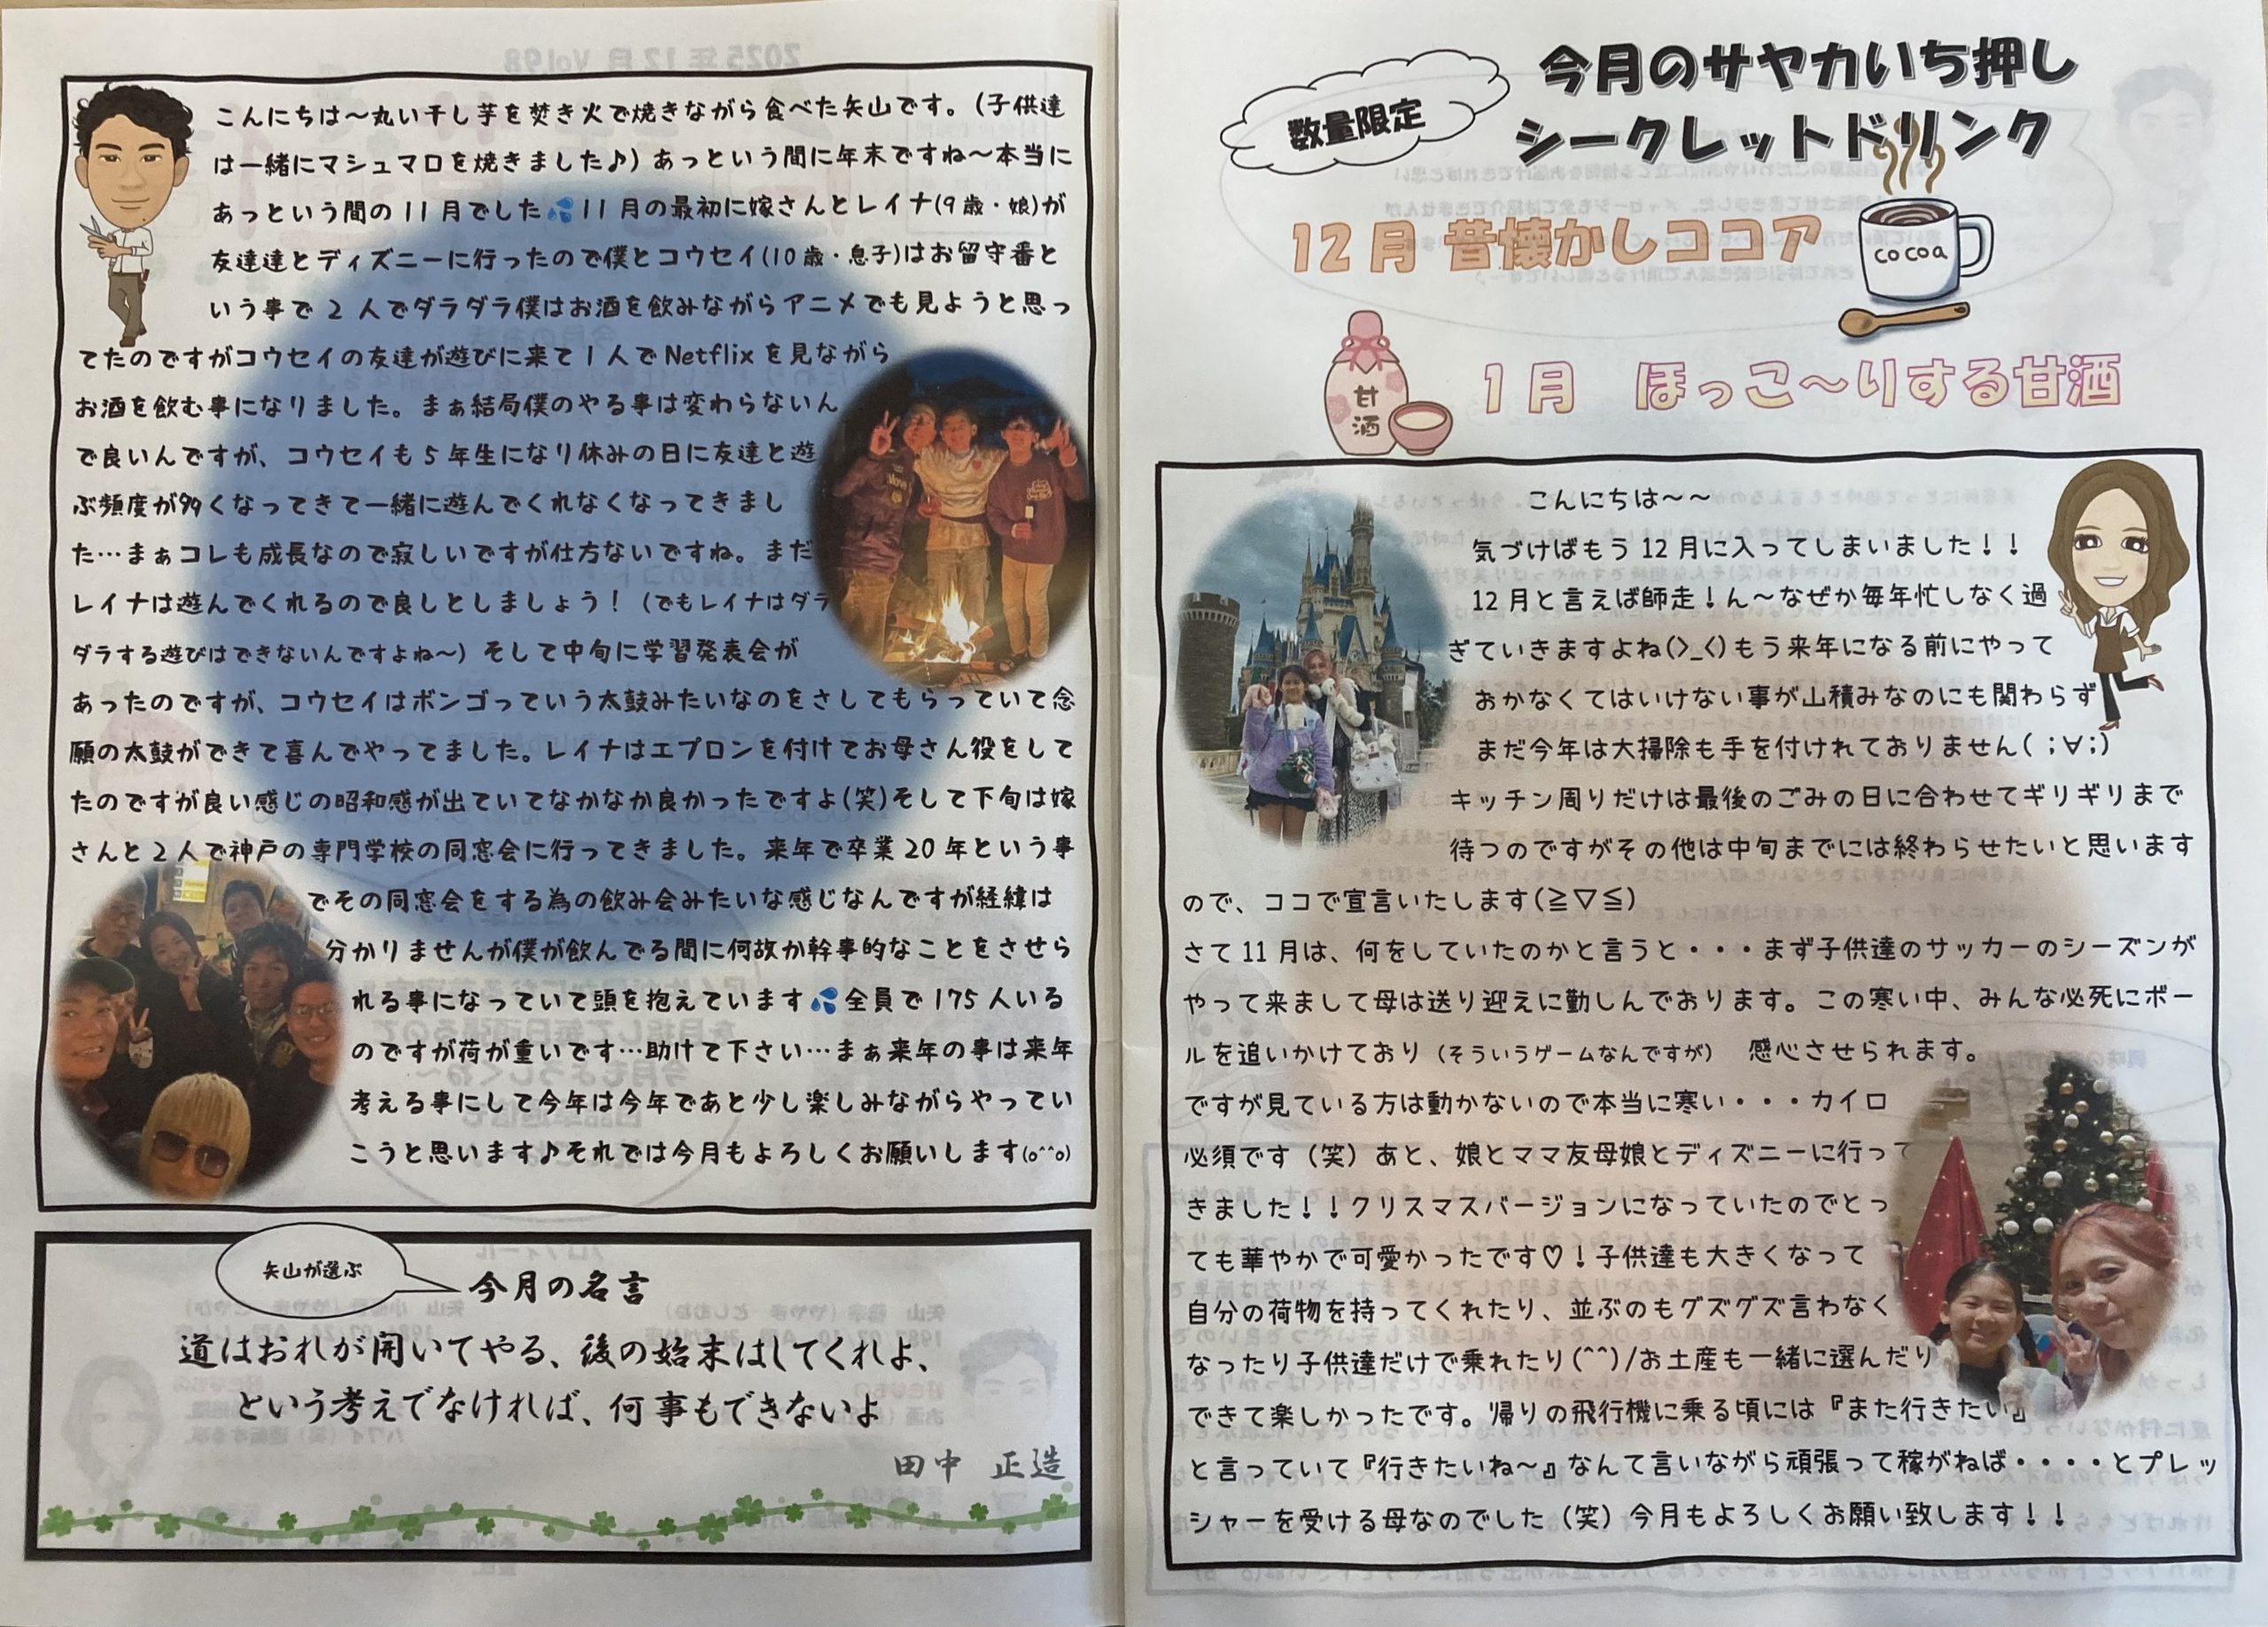 こんにちは～丸い干し芋を焚き火で焼きながら食べた矢山です。(子供達
は一緒にマシュマロを焼きました♪）あっという間に年末ですね～本当に
あっという間の11月でした💦11月の最初に嫁さんとレイナ(9歳・娘)が
友達達とディズニーに行ったので僕とコウセイ(10歳・息子)はお留守番と
いう事で2人でダラダラ僕はお酒を飲みながらアニメでも見ようと思っ
てたのですがコウセイの友達が遊びに来て1人でNetflixを見ながら
お酒を飲む事になりました。まぁ結局僕のやる事は変わらないん
で良いんですが、コウセイも5年生になり休みの日に友達と遊
ぶ頻度が多くなってきて一緒に遊んでくれなくなってきまし
た…まぁコレも成長なので寂しいですが仕方ないですね。まだ
レイナは遊んでくれるので良しとしましょう！（でもレイナはダラ
ダラする遊びはできないんですよね～）そして中旬に学習発表会が
あったのですが、コウセイはボンゴっていう太鼓みたいなのをさしてもらっていて念
願の太鼓ができて喜んでやってました。レイナはエプロンを付けてお母さん役をして
たのですが良い感じの昭和感が出ていてなかなか良かったですよ(笑)そして下旬は嫁
さんと2人で神戸の専門学校の同窓会に行ってきました。来年で卒業20年という事
でその同窓会をする為の飲み会みたいな感じなんですが経緯は
分かりませんが僕が飲んでる間に何故か幹事的なことをさせら
れる事になっていて頭を抱えています💦全員で175人いる
のですが荷が重いです…助けて下さい…まぁ来年の事は来年
考える事にして今年は今年であと少し楽しみながらやってい
こうと思います♪それでは今月もよろしくお願いします(o^^o)
矢山が選ぶ
今月の名言
道はおれが開いてやる、後の始末はしてくれよ、
という考えでなければ、何事もできないよ
田中 正造
数量限定
今月のサヤカいち押し
シークレットドリンク
12月 昔懐かしココア
cocoa
甘酒
1月 ほっこ～りする甘酒
こんにちは～～
気づけばもう12月に入ってしまいました！！
12月と言えば師走！ん～なぜか毎年忙しなく過
ぎていきますよね(>_<)もう来年になる前にやって
おかなくてはいけない事が山積みなのにも関わらず
まだ今年は大掃除も手を付けれておりません( ;∀;)
キッチン周りだけは最後のごみの日に合わせてギリギリまで
待つのですがその他は中旬までには終わらせたいと思います
ので、ココで宣言いたします(≧▽≦)
さて11月は、何をしていたのかと言うと・・・まず子供達のサッカーのシーズンが
やって来まして母は送り迎えに勤しんでおります。この寒い中、みんな必死にボー
ルを追いかけており（そういうゲームなんですが） 感心させられます。
ですが見ている方は動かないので本当に寒い・・・カイロ
必須です（笑）あと、娘とママ友母娘とディズニーに行って
きました！！クリスマスバージョンになっていたのでとっ
ても華やかで可愛かったです♡！子供達も大きくなって
自分の荷物を持ってくれたり、並ぶのもグズグズ言わなく
なったり子供達だけで乗れたり(^^)/お土産も一緒に選んだり
できて楽しかったです。帰りの飛行機に乗る頃には『また行きたい』
と言っていて『行きたいね～』なんて言いながら頑張って稼がねば・・・・とプレッ
シャーを受ける母なのでした（笑）今月もよろしくお願い致します！！